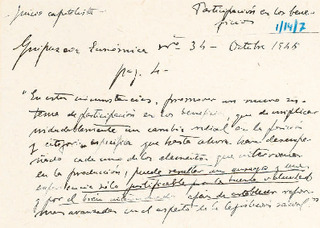 Juicio capitalista
Participación en los bene-
ficios
1/14/7
Guipuzcoa Económica nº 34 - Octubre 1945
pag. 4 -
"En estas circunstancias, promover un nuevo sis-
tema de participación en los beneficios, que ha de implicar
indudablemente un cambio radical en la posición
y categoría específica que hasta ahora han desempe-
ñado cada uno de los elementos que intervienen
en la producción, puede resultar un
sólo justificable por la buena voluntad
y por el bien afán de establecer refor-
mas avanzadas en el aspecto de la legislación social"